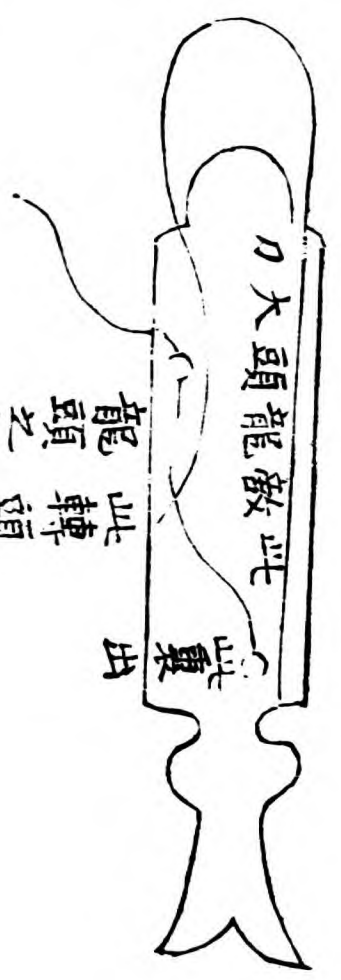 此龍頭大刀
此裏出
此轉頭
龍頭之